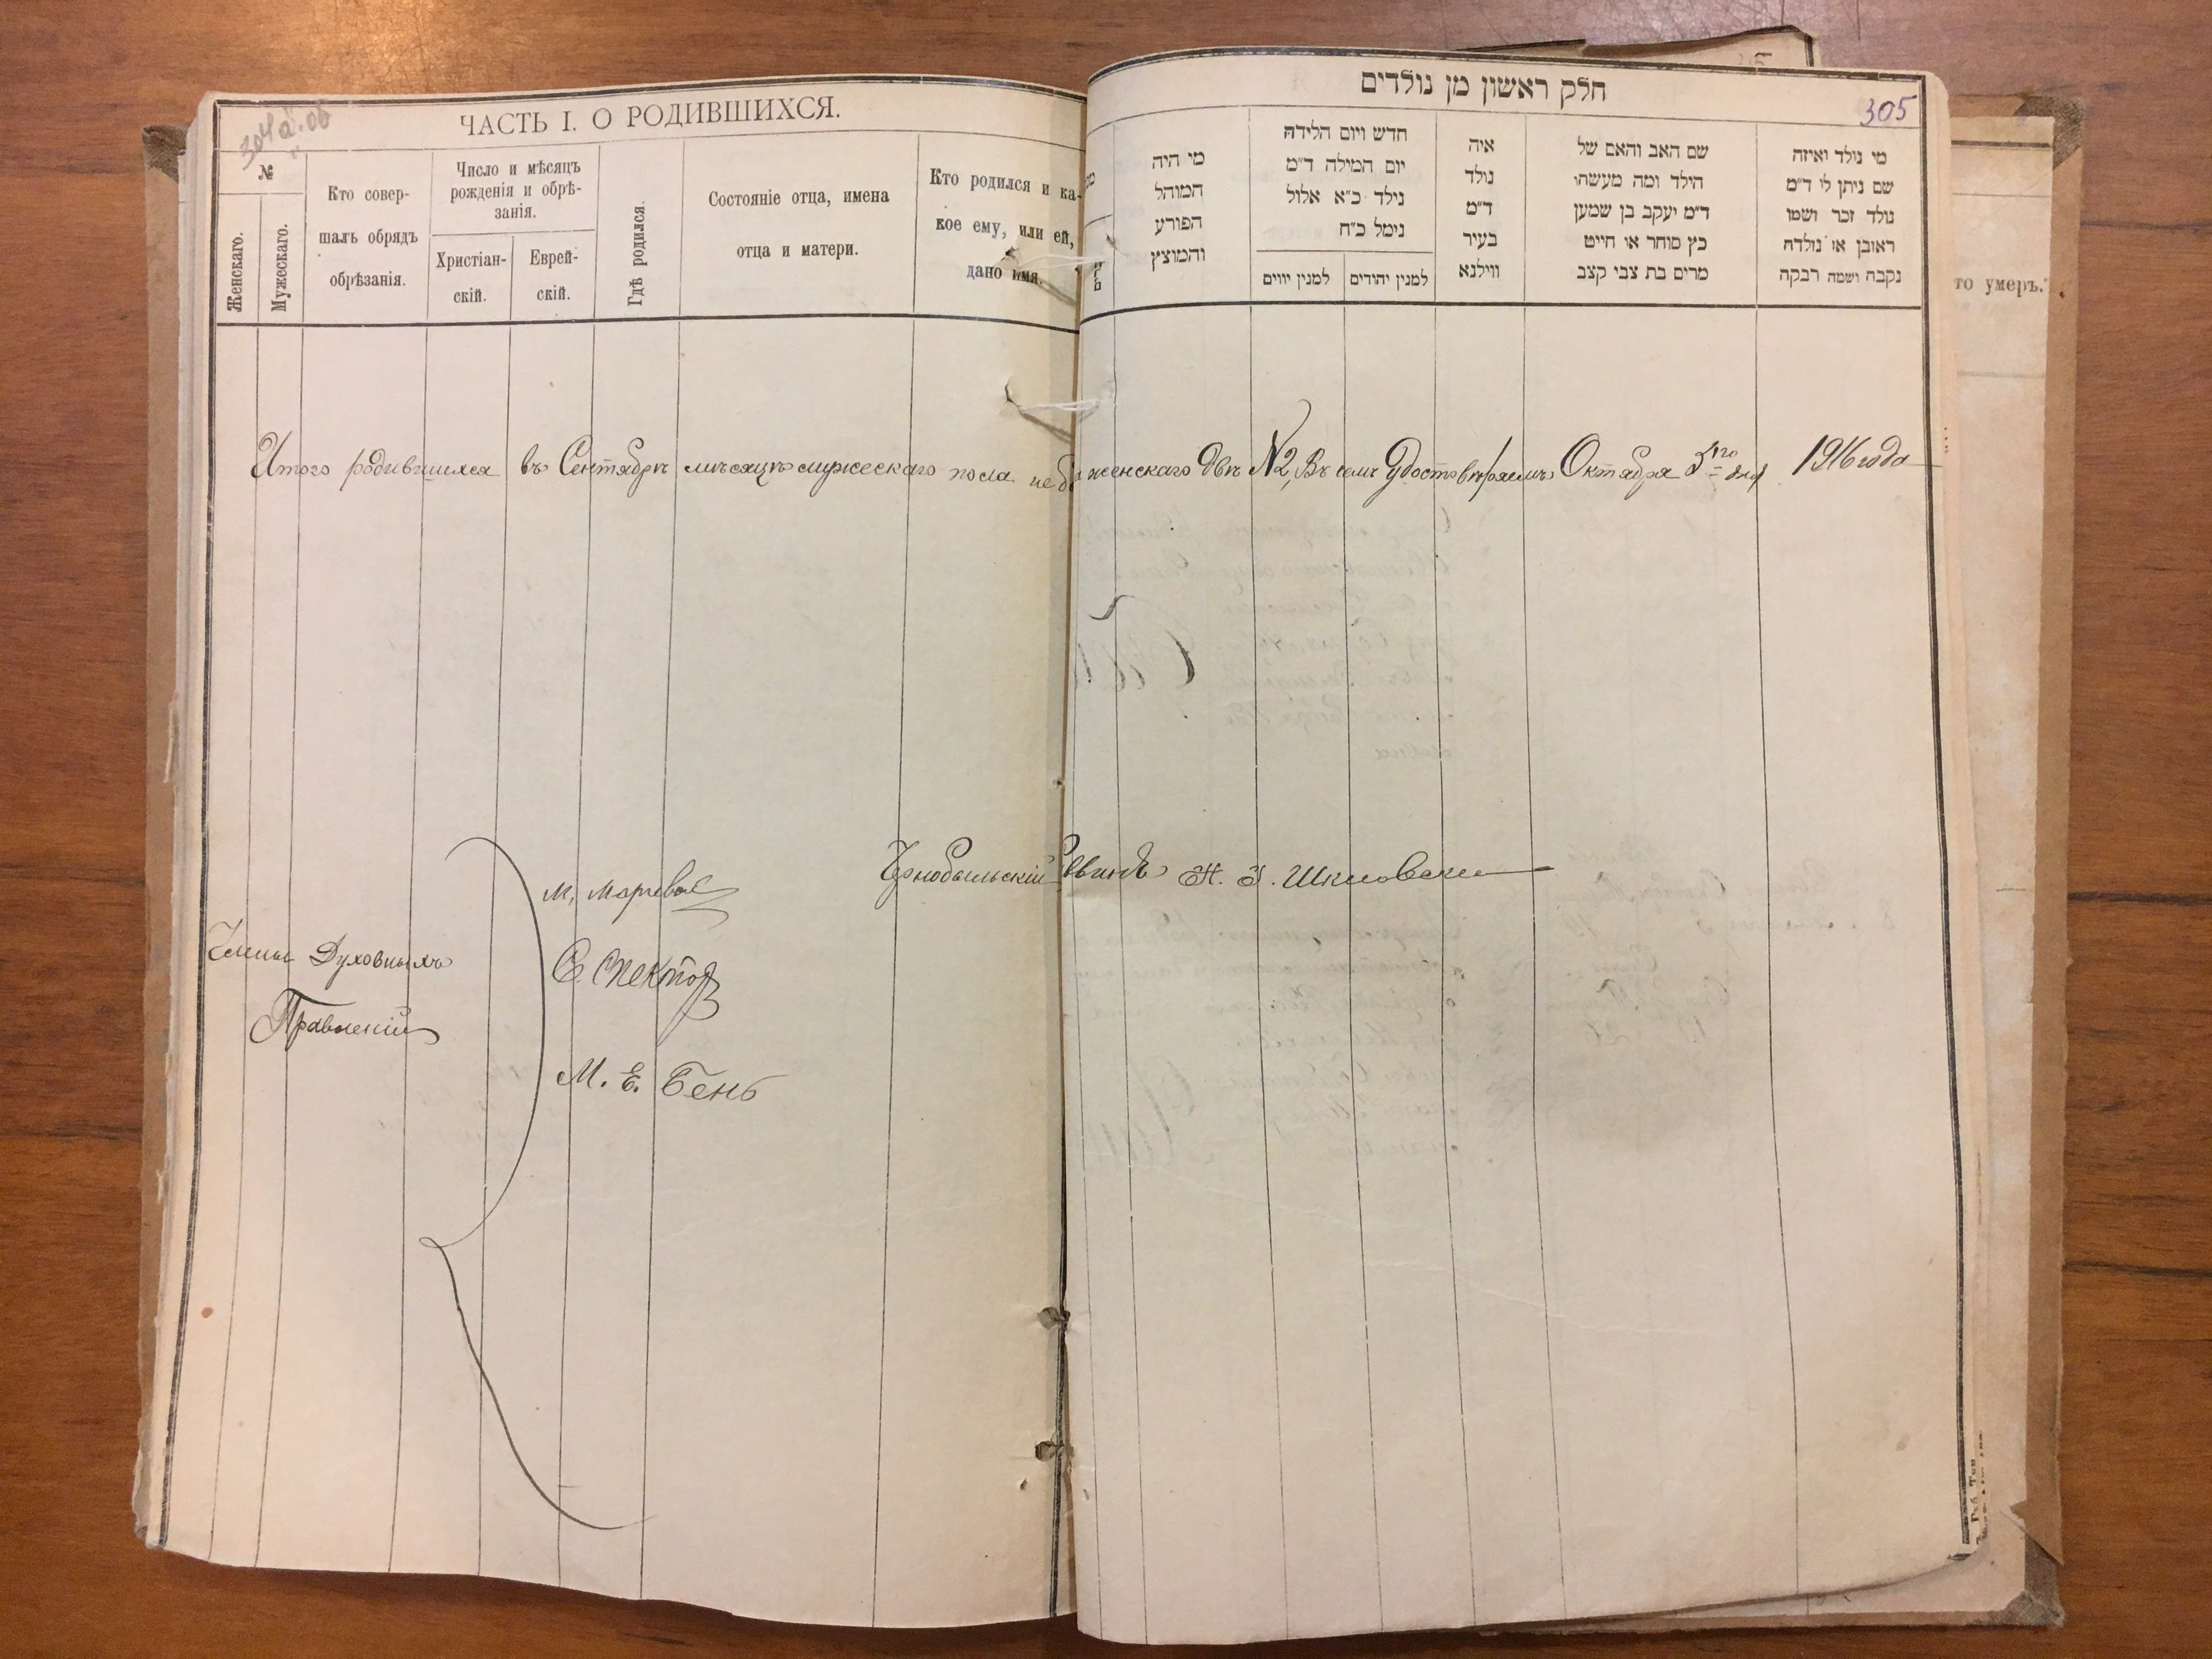 304а об
ЧАСТЬ I. О РОДИВШИХСЯ.
№
Женскаго.
Мужескаго.
Кто совер-
шалъ обрядъ
обрѣзанія.
Число и мѣсяцъ
рожденія и обрѣ-
занія.
Христіан-
скій.
Еврей-
скій.
Гдѣ родился.
Состояніе отца, имена
отца и матери.
Кто родился и ка-
кое ему, или ей,
дано имя.
חלק ראשון מן נולדים
305
מי היה
המוהל
הפורע
והמוצץ
חדש ויום הלידה
יום המילה ד"מ
נילד כ"א אלול
נימל כ"ח
למנין יווים
למנין יהודים
איה
נולד
ד"מ
בעיר
ווילנא
שם האב והאם של
הילד ומה מעשהו
ד"מ יעקב בן שמען
כץ סוחר או חייט
מרים בת צבי קצב
מי נולד ואיזה
שם ניתן לו ד"מ
נולד זכר ושמו
ראובן או נולדה
נקבה ושמה רבקה
то умеръ.
Итого родившихся въ Сентябрѣ мѣсяцѣ мужескаго пола небы женскаго двѣ №2, Въ семъ Удостовѣряемъ Октября 5го дня 1916 года
Чернобыльскій Раввинъ Н. З. Шкловски
Члены Духовныхъ
Правленій
М.
С. Спектор
М. Е. Бень
Губ. Тип